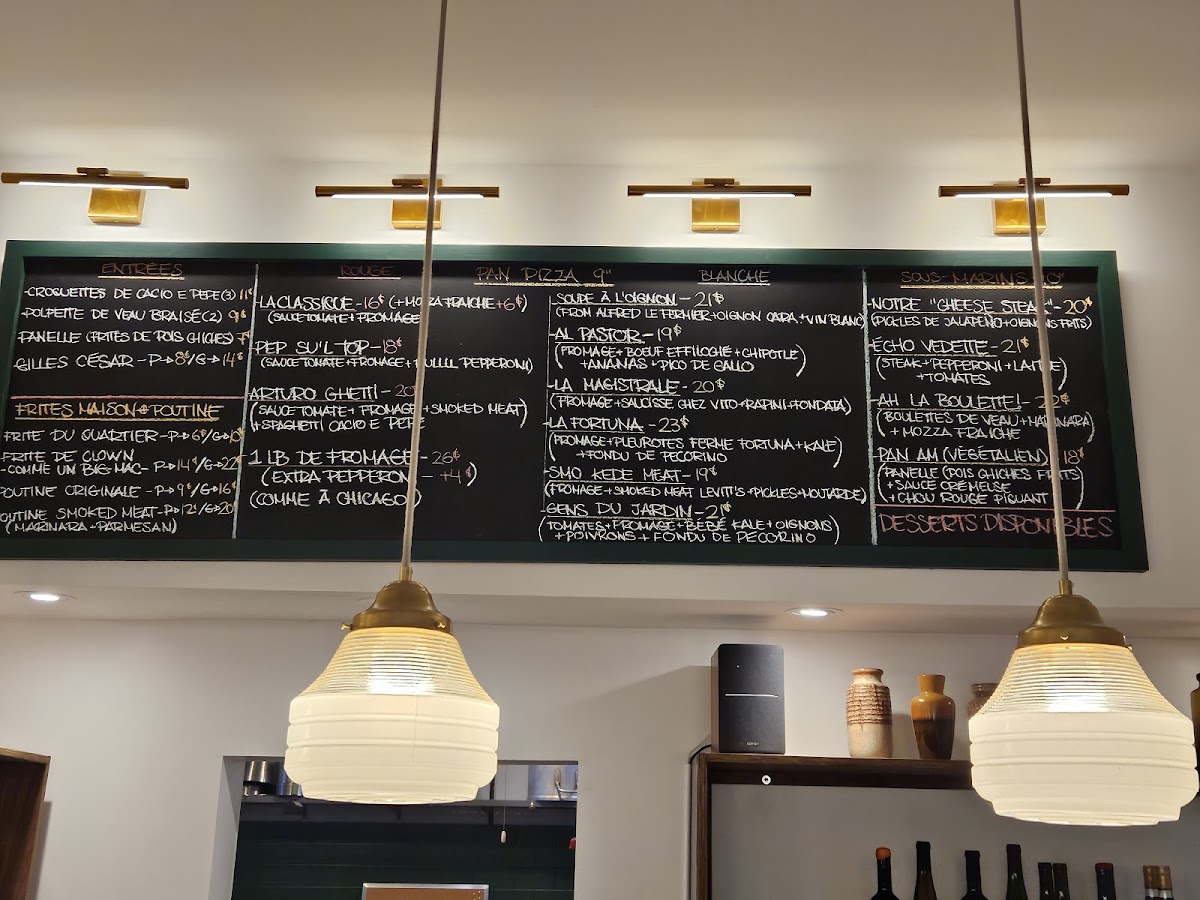 ENTRÉES
-CROQUETTES DE CACIO E PEPE(3) 11$
-POLPETTE DE VEAU BRAISÉ(2) 9$
PANELLE (FRITES DE POIS CHICHES) 7$
GILLES CÉSAR-P→8$/G→14$
FRITES MAISON & POUTINE
FRITE DU QUARTIER-P→6$/G→
FRITE DE CLOWN
-COMME UN BIG MAC- P→14$/G→22$
POUTINE ORIGINALE-P→9$/G→16$
POUTINE SMOKED MEAT-P→12$/G→20$
(MARINARA+PARMESAN)
PAN PIZZA 9"
ROUGE
-LA CLASSIQUE-16$ (+MOZZA FRAICHE+6$)
(SAUCE TOMATE+FROMAGE
-PEP SU'L TOP-18$
(SAUCE TOMATE+FROMAGE+FULLLL PEPPERONI)
ARTURO GHETTI-20
(SAUCE TOMATE+FROMAGE+SMOKED MEAT)
+SPAGHETTI CACIO E PEPE
1 LB DE FROMAGE-26$
(EXTRA PEPPERONI-+4$)
(COMME À CHICAGO)
BLANCHE
-SOUPE À L'OIGNON-21$
(FROM ALFRED LE FERMIER+OIGNON CARA.+VIN BLANC)
-AL PASTOR-19$
(FROMAGE+BŒUF EFFILOCHÉ+CHIPOTLE)
+ANANAS+PICO DE GALLO
-LA MAGISTRALE-20$
(FROMAGE+SAUCISSE CHEZ VITO+RAPINI+FONDATA)
-LA FORTUNA-23$
(FROMAGE+PLEUROTES FERME FORTUNA+KALE)
+FONDU DE PECORINO
-SMO KEDE MEAT-19$
(FROMAGE+SMOKED MEAT LEVITT'S+PICKLES+MOUTARDE)
-GENS DU JARDIN-21$
(TOMATES+FROMAGE+BÉBÉ KALE+OIGNONS)
+POIVRONS+FONDU DE PECORINO
SOUS-MARINS 10"
-NOTRE "CHEESE STEAK"-20$
(PICKLES DE JALAPEÑO+OIGNONS FRITS)
-ÉCHO VEDETTE-21$
(STEAK+PEPPERONI+LAITUE)
+TOMATES
-AH LA BOULETTE!-22$
(BOULETTES DE VEAU+MARINARA)
+MOZZA FRAICHE
PAN AM (VÉGÉTALIEN) 18$
(PANELLE (POIS CHICHES FRITS)
+SAUCE CRÉMEUSE
+CHOU ROUGE PIQUANT
DESSERTS DISPONIBLES